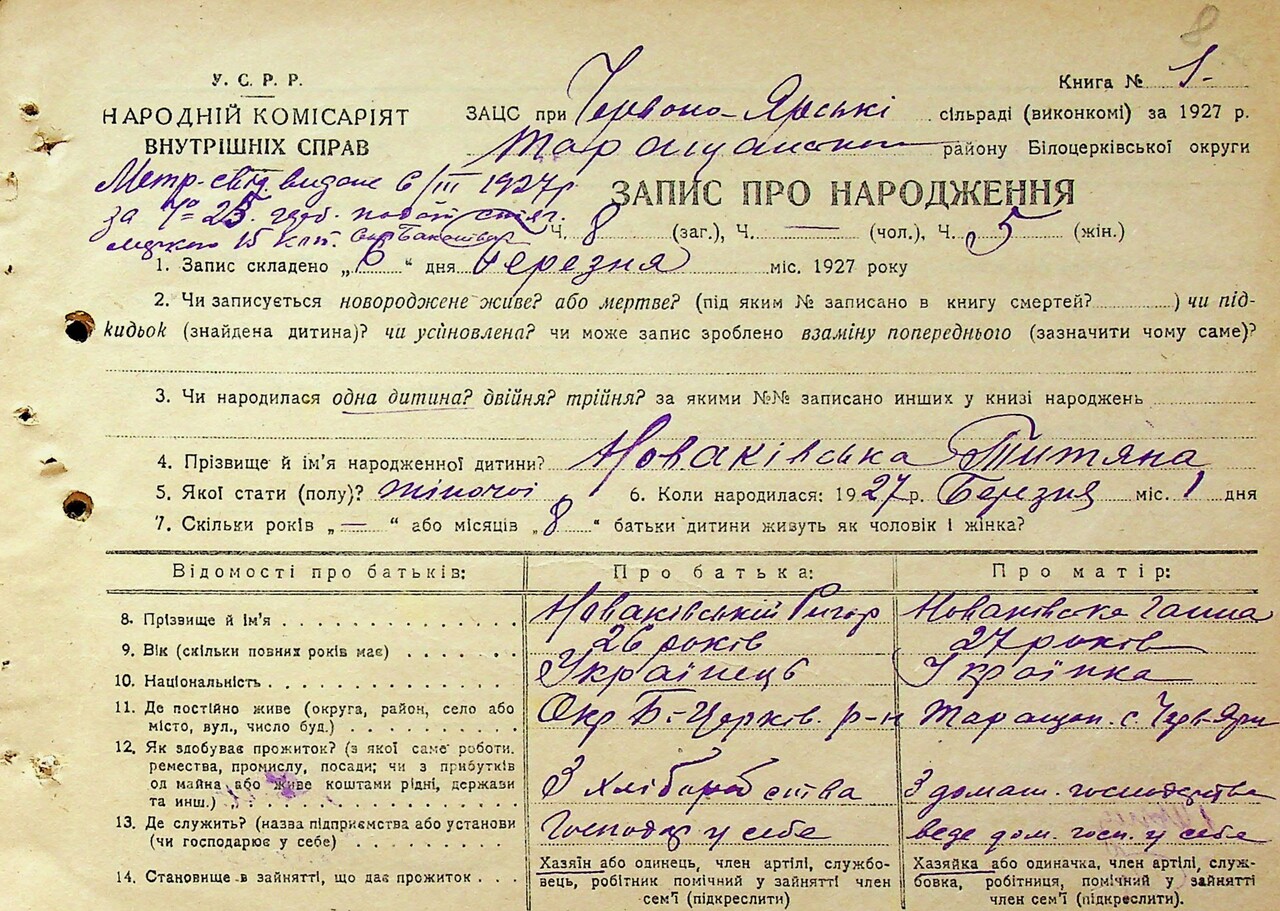 8
У. С. Р. Р.
НАРОДНІЙ КОМІСАРІЯТ
ВНУТРІШНІХ СПРАВ
Книга № 1-
ЗАЦС при Червоно-Ярські сільраді (виконкомі) за 1927 р.
Таращанськ району Білоцерківської округи
Метр-свід видане 6/III 1927р.
за № 25.
15 коп.
ЗАПИС ПРО НАРОДЖЕННЯ
Ч. 8 (заг.), Ч. — (чол.), Ч. 5 (жін.)
1. Запис складено „ 6 “ дня Березня міс. 1927 року
2. Чи записується новороджене живе? або мертве? (під яким № записано в книгу смертей?............) чи під-
кидьок (знайдена дитина)? чи усиновлена? чи може запис зроблено взаміну попереднього (зазначити чому саме)?
3. Чи народилася одна дитина? двійня? трійня? за якими №№ записано инших у книзі народжень
4. Прізвище й ім'я народженної дитини? Новаківська Титяна
5. Якої стати (полу)? жіночої 6. Коли народилася: 1927 р. Березня міс. 1 дня
7. Скільки років „ — “ або місяців „ 8 “ батьки дитини живуть як чоловік і жінка?
Відомості про батьків: Про батька: Про матір:
8. Прізвище й ім'я Новаківській Ригор Новаківска Ганна
9. Вік (скільки повних років має) 26 років 27 років
10. Національність Українець Українка
11. Де постійно живе (округа, район, село або
місто, вул., число буд.) Окр Б-Церків. р-н Таращан. с. Черв-Яри
12. Як здобуває прожиток? (з якої саме роботи.
ремества, промислу, посади; чи з прибутків
од майна, або живе коштами рідні, держави
та инш.) З хліборобства З домаш. господарства
13. Де служить? (назва підприємства або установи
(чи господарює у себе) Господар у себе веде дом. госп. у себе
14. Становище в зайнятті, що дає прожиток
Хазяїн або одинець, член артілі, службо-
вець, робітник помічний у зайнятті член
сем'ї (підкреслити)
Хазяйка або одиначка, член артілі, служ-
бовка, робітниця, помічний у зайнятті
член сем'ї (підкреслити).